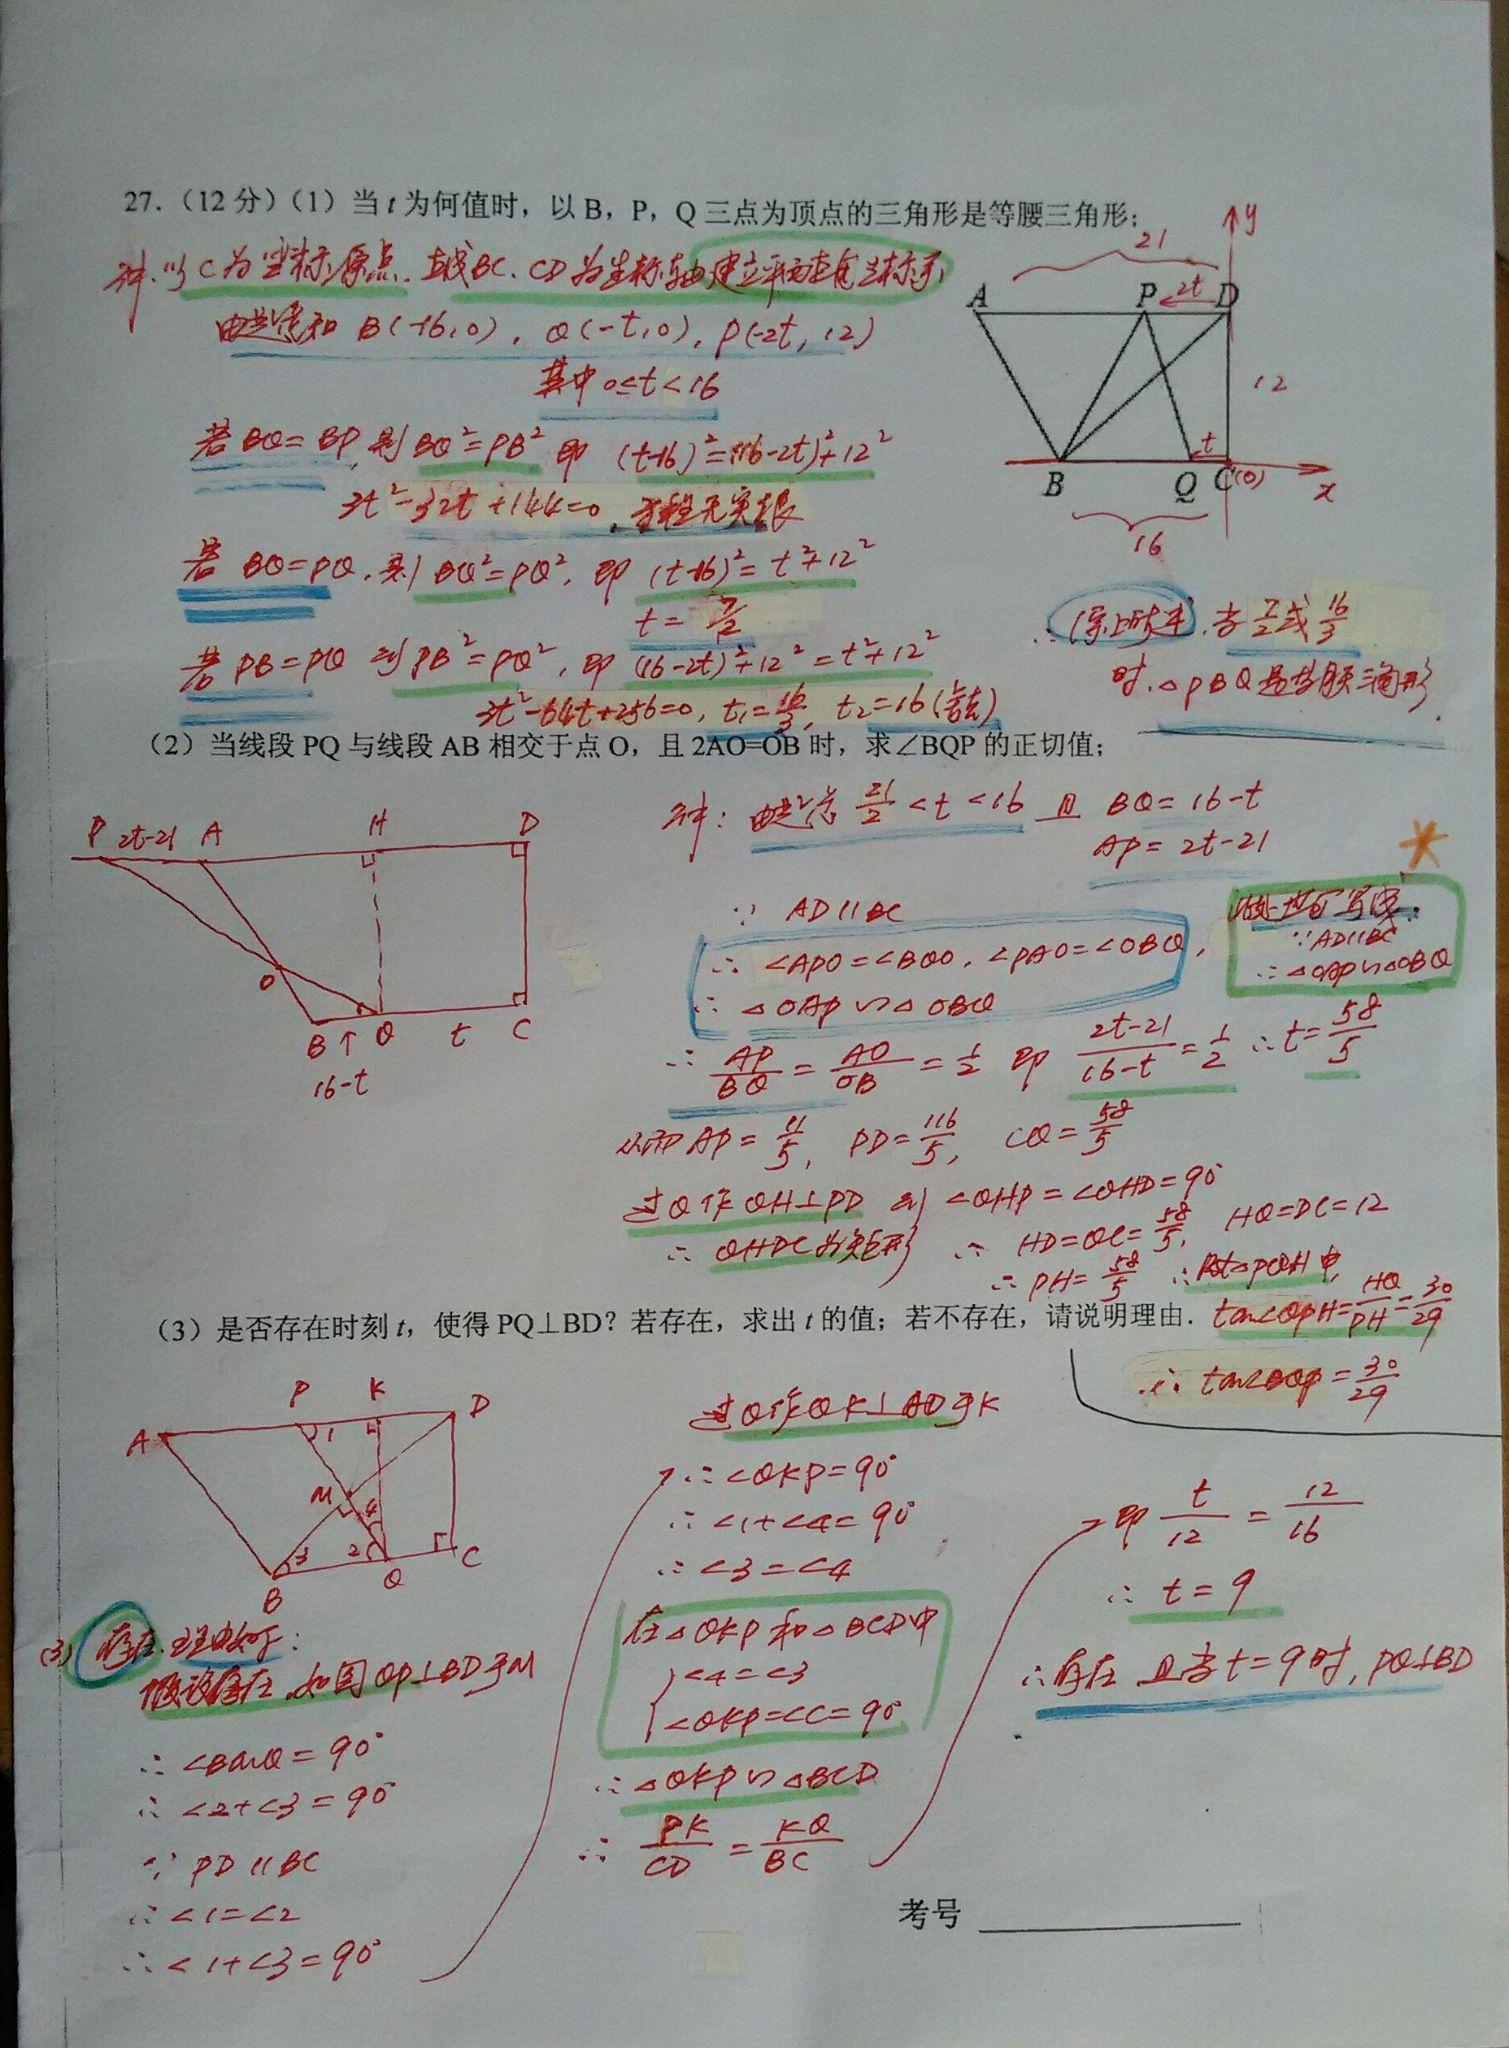 27.（12分）（1）当t为何值时，以B，P，Q三点为顶点的三角形是等腰三角形；
解：以C为坐标原点、直线BC、CD为坐标轴建立平面直角坐标系
由题意知 B(-16,0)，Q(-t,0)，P(-2t,12)
其中 0≤t<16
若BQ=BP，则BQ²=PB² 即 (t-16)²=(16-2t)²+12²
3t²-32t+144=0，方程无实根
若 BQ=PQ，则BQ²=PQ²，即 (t-16)²=t²+12²
t=7/2
若 PB=PQ 则PB²=PQ²，即 (16-2t)²+12²=t²+12²
3t²-64t+256=0，t₁=16/3，t₂=16(舍去)
y
21
A P 2t D
12
t
B Q C(0)
x
16
∴综上所述，当7/2或16/3
时，△PBQ是等腰三角形．
（2）当线段PQ与线段AB相交于点O，且2AO=OB时，求∠BQP的正切值；
P 2t-21 A H D
O
B Q t C
16-t
解：由题意 21/2<t<16 且 BQ=16-t
AP=2t-21
∵ AD∥BC
∴ ∠APO=∠BQO，∠PAO=∠OBQ，
∴ △OAP∽△OBQ
此处也可写成：
∵AD∥BC
∴△OAP∽△OBQ
∴ AP/BQ = AO/OB = 1/2 即 (2t-21)/(16-t)=1/2 ∴t=58/5
从而AP=11/5，PD=116/5，CQ=58/5
过Q作QH⊥PD 则∠QHP=∠QHD=90°
∴ QHDC为矩形 ∴ HD=QC=58/5，HQ=DC=12
∴PH=58/5 ∴Rt△PQH中，
tan∠QPH=HQ/PH=30/29
∴ tan∠BQP=30/29
（3）是否存在时刻t，使得PQ⊥BD？若存在，求出t的值；若不存在，请说明理由．
P K D
A 1
M 4
3 2
B Q C
(3) 存在．理由如下：
假设存在，如图QP⊥BD于M
∴ ∠BMQ=90°
∴ ∠2+∠3=90°
∵ PD∥BC
∴ ∠1=∠2
∴ ∠1+∠3=90°
过Q作QK⊥AD于K
∴ ∠QKP=90°
∴ ∠1+∠4=90°
∴ ∠3=∠4
在△QKP和△BCD中
∠4=∠3
∠QKP=∠C=90°
∴ △QKP∽△BCD
∴ PK/CD = KQ/BC
即 t/12 = 12/16
∴ t=9
∴存在 且当t=9时，PQ⊥BD
考号